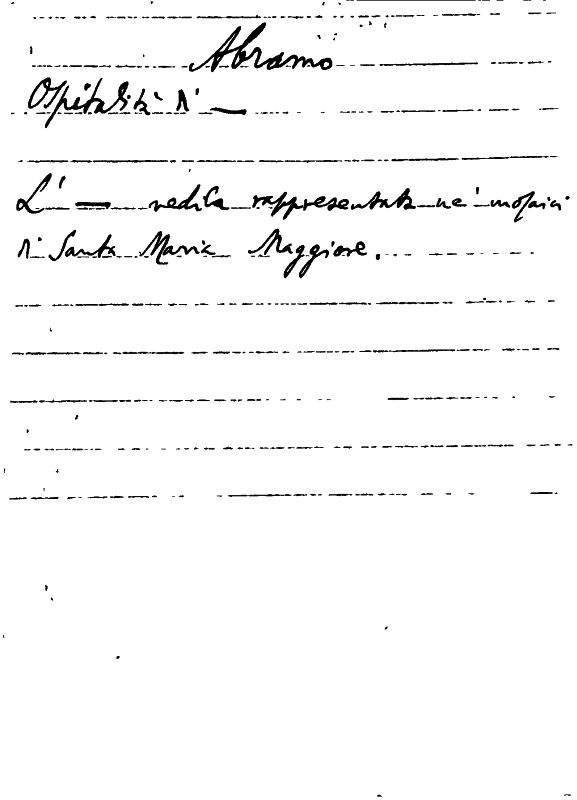 Abramo
Ospitalità d' —
L' — vedila rappresentata ne' mosaici
di Santa Maria Maggiore.